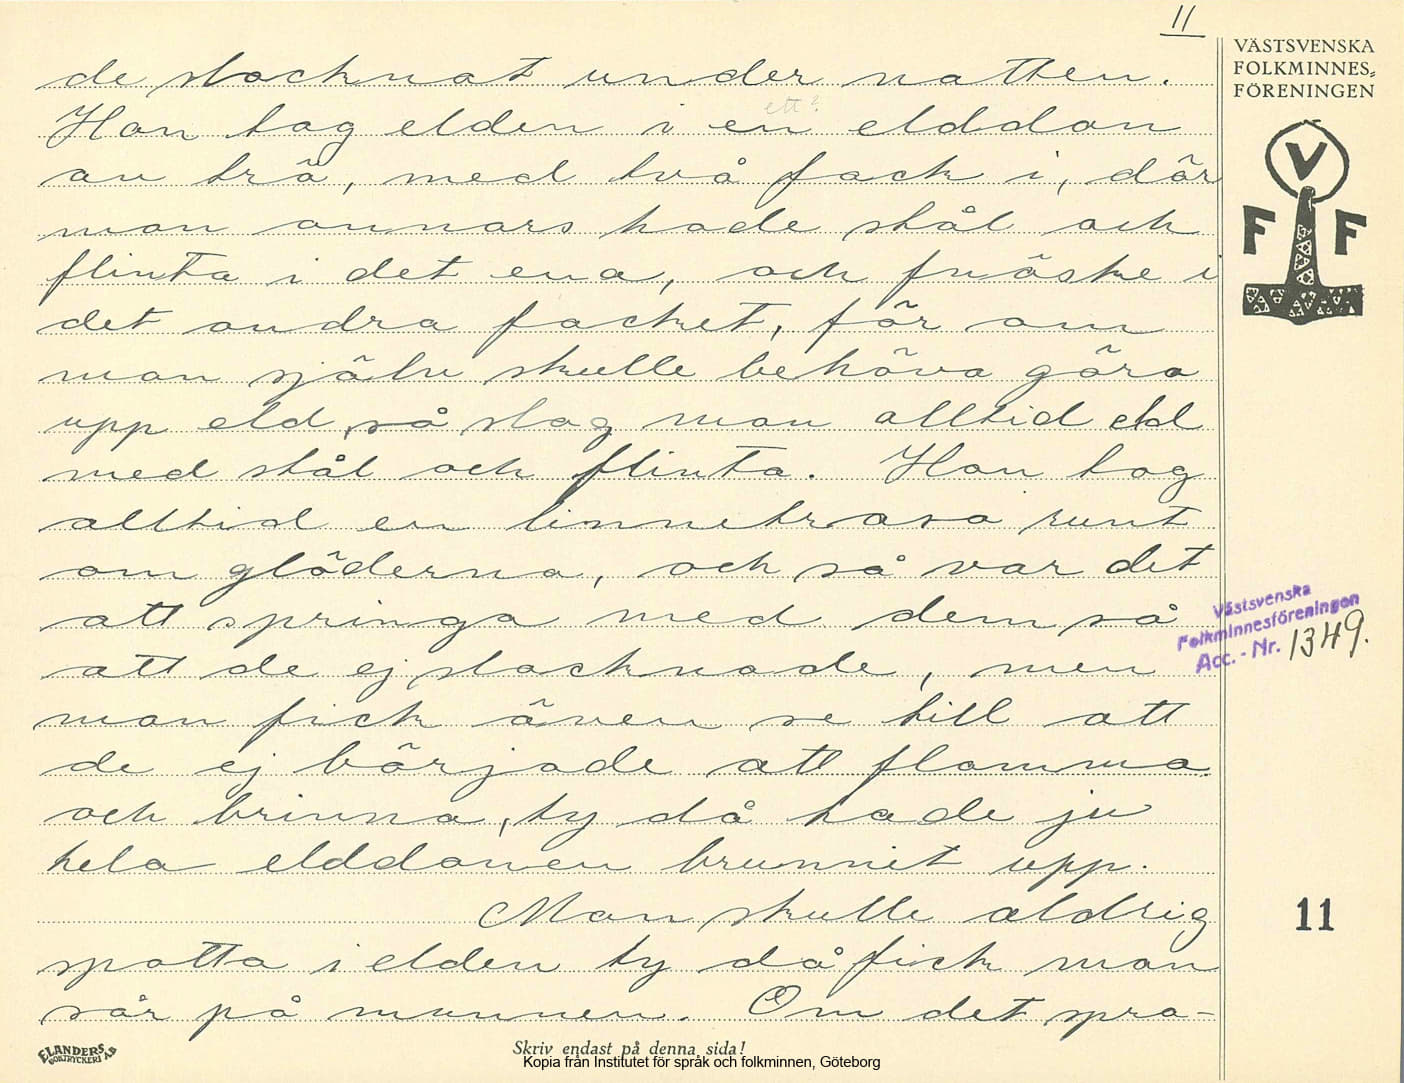 11
VÄSTSVENSKA
FOLKMINNES=
FÖRENINGEN
V
F F
de slocknat under natten.
ett?
Han tog elden i en elddon
av trä, med två fack i, där
man annars hade stål och
flinta i det ena, och fnöske i
det andra facket, för om
man själv skulle behöva göra
upp eld, så slog man alltid eld
med stål och flinta. Han tog
alltid en linnetrasa runt
om glöderna, och så var det
att springa med dem så
att de ej slocknade, men
man fick även se till att
de ej började att flamma
och brinna, ty då hade ju
hela elddonen brunnit upp.
Man skulle aldrig
spotta i elden ty då fick man
sår på munnen. Om det spra-
Västsvenska
Folkminnesföreningen
Acc. - Nr. 1349.
11
ELANDERS
BOKTRYCKERI AB
Skriv endast på denna sida!
Kopia från Institutet för språk och folkminnen, Göteborg